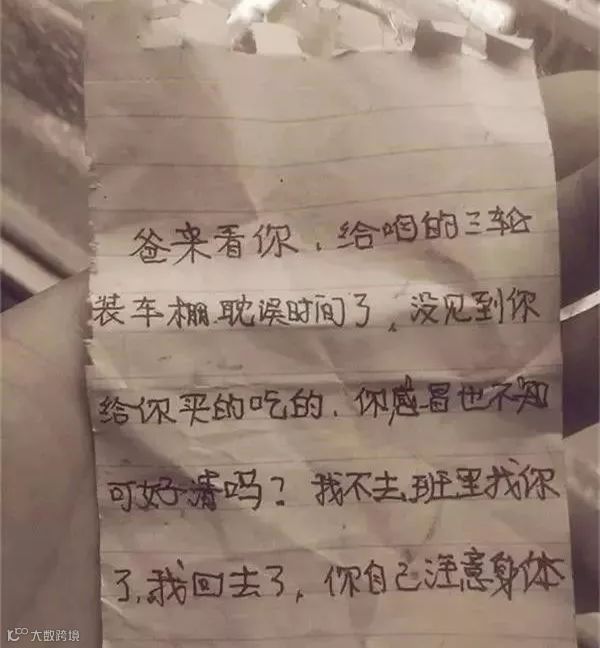 爸来看你,给咱的三轮
装车棚.耽误时间了,没见到你
给你买的吃的.你感冒也不知
可好清吗?我不去.班里找你
了,我回去了,你自己注意身体
大数跨境